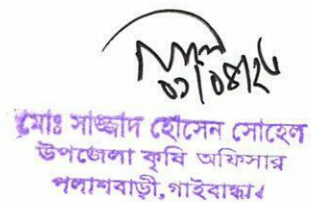 ০১/০৪/২৫
মোঃ সাজ্জাদ হোসেন সোহেল
উপজেলা কৃষি অফিসার
পলাশবাড়ী, গাইবান্ধা।